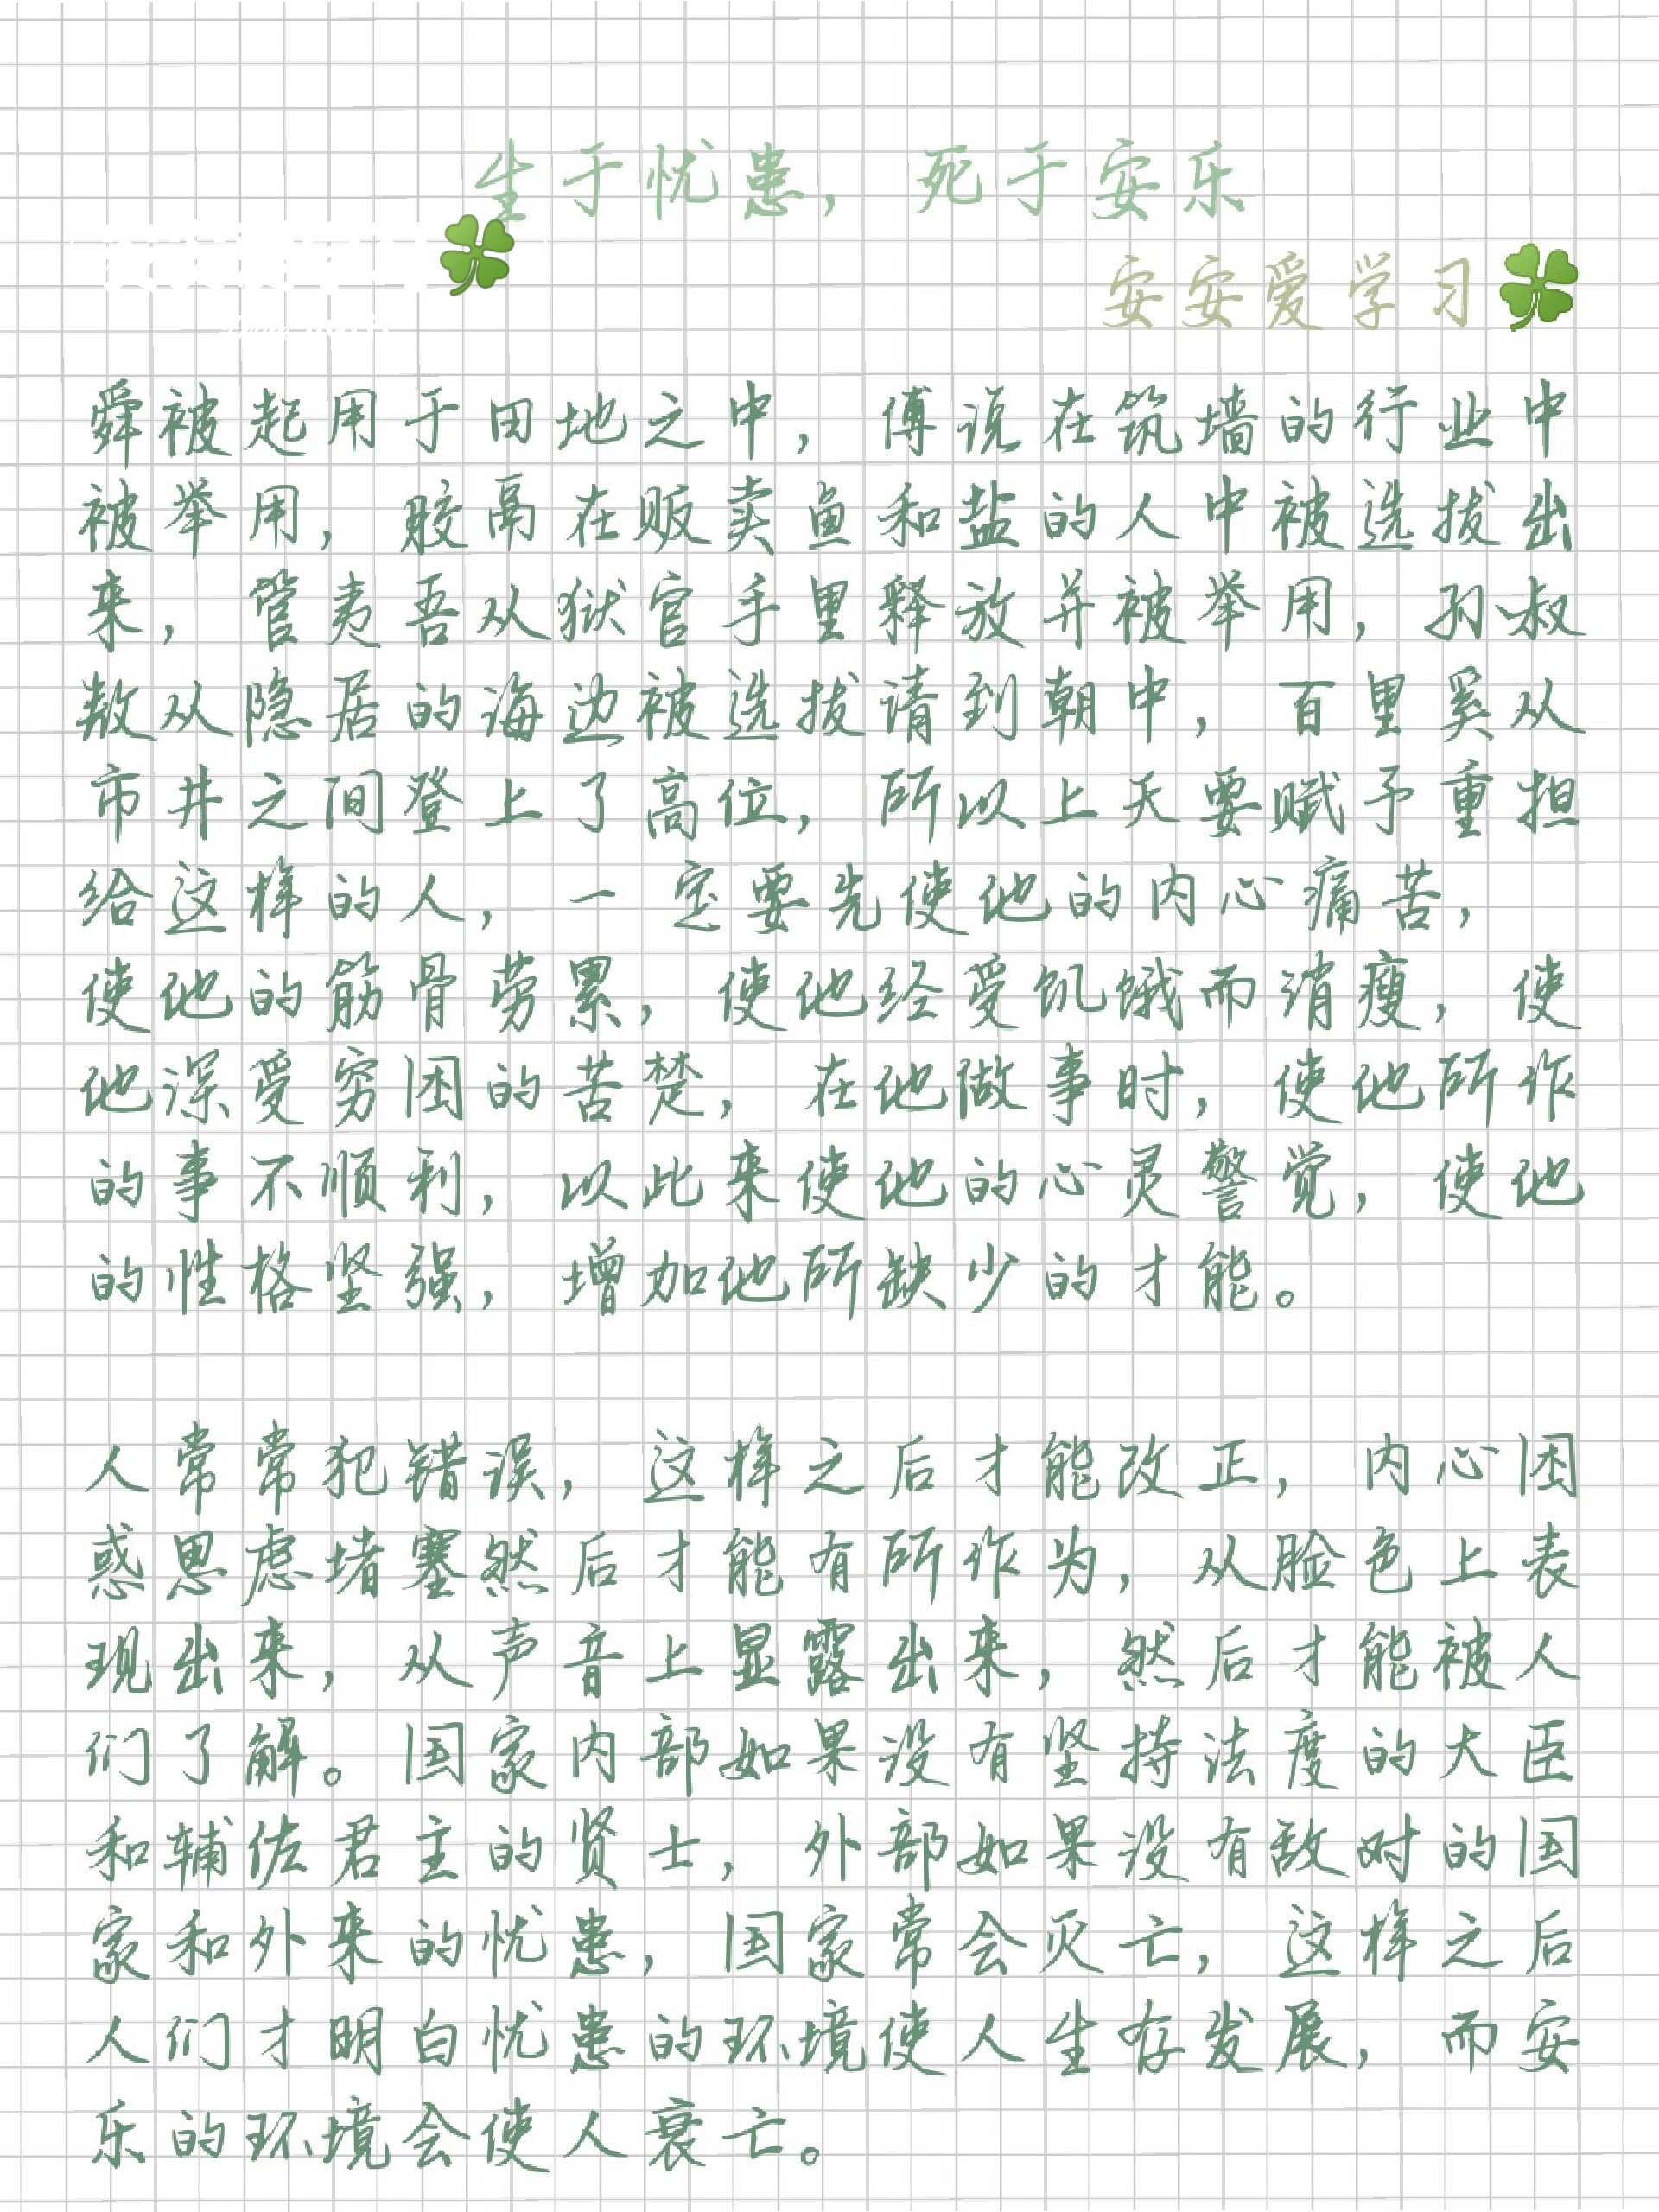 生于忧患，死于安乐
安安爱学习
舜被起用于田地之中，傅说在筑墙的行业中
被举用，胶鬲在贩卖鱼和盐的人中被选拔出
来，管夷吾从狱官手里释放并被举用，孙叔
敖从隐居的海边被选拔请到朝中，百里奚从
市井之间登上了高位，所以上天要赋予重担
给这样的人，一定要先使他的内心痛苦，
使他的筋骨劳累，使他经受饥饿而消瘦，使
他深受穷困的苦楚，在他做事时，使他所作
的事不顺利，以此来使他的心灵警觉，使他
的性格坚强，增加他所缺少的才能。
人常常犯错误，这样之后才能改正，内心困
惑思虑堵塞然后才能有所作为，从脸色上表
现出来，从声音上显露出来，然后才能被人
们了解。国家内部如果没有坚持法度的大臣
和辅佐君主的贤士，外部如果没有敌对的国
家和外来的忧患，国家常会灭亡，这样之后
人们才明白忧患的环境使人生存发展，而安
乐的环境会使人衰亡。